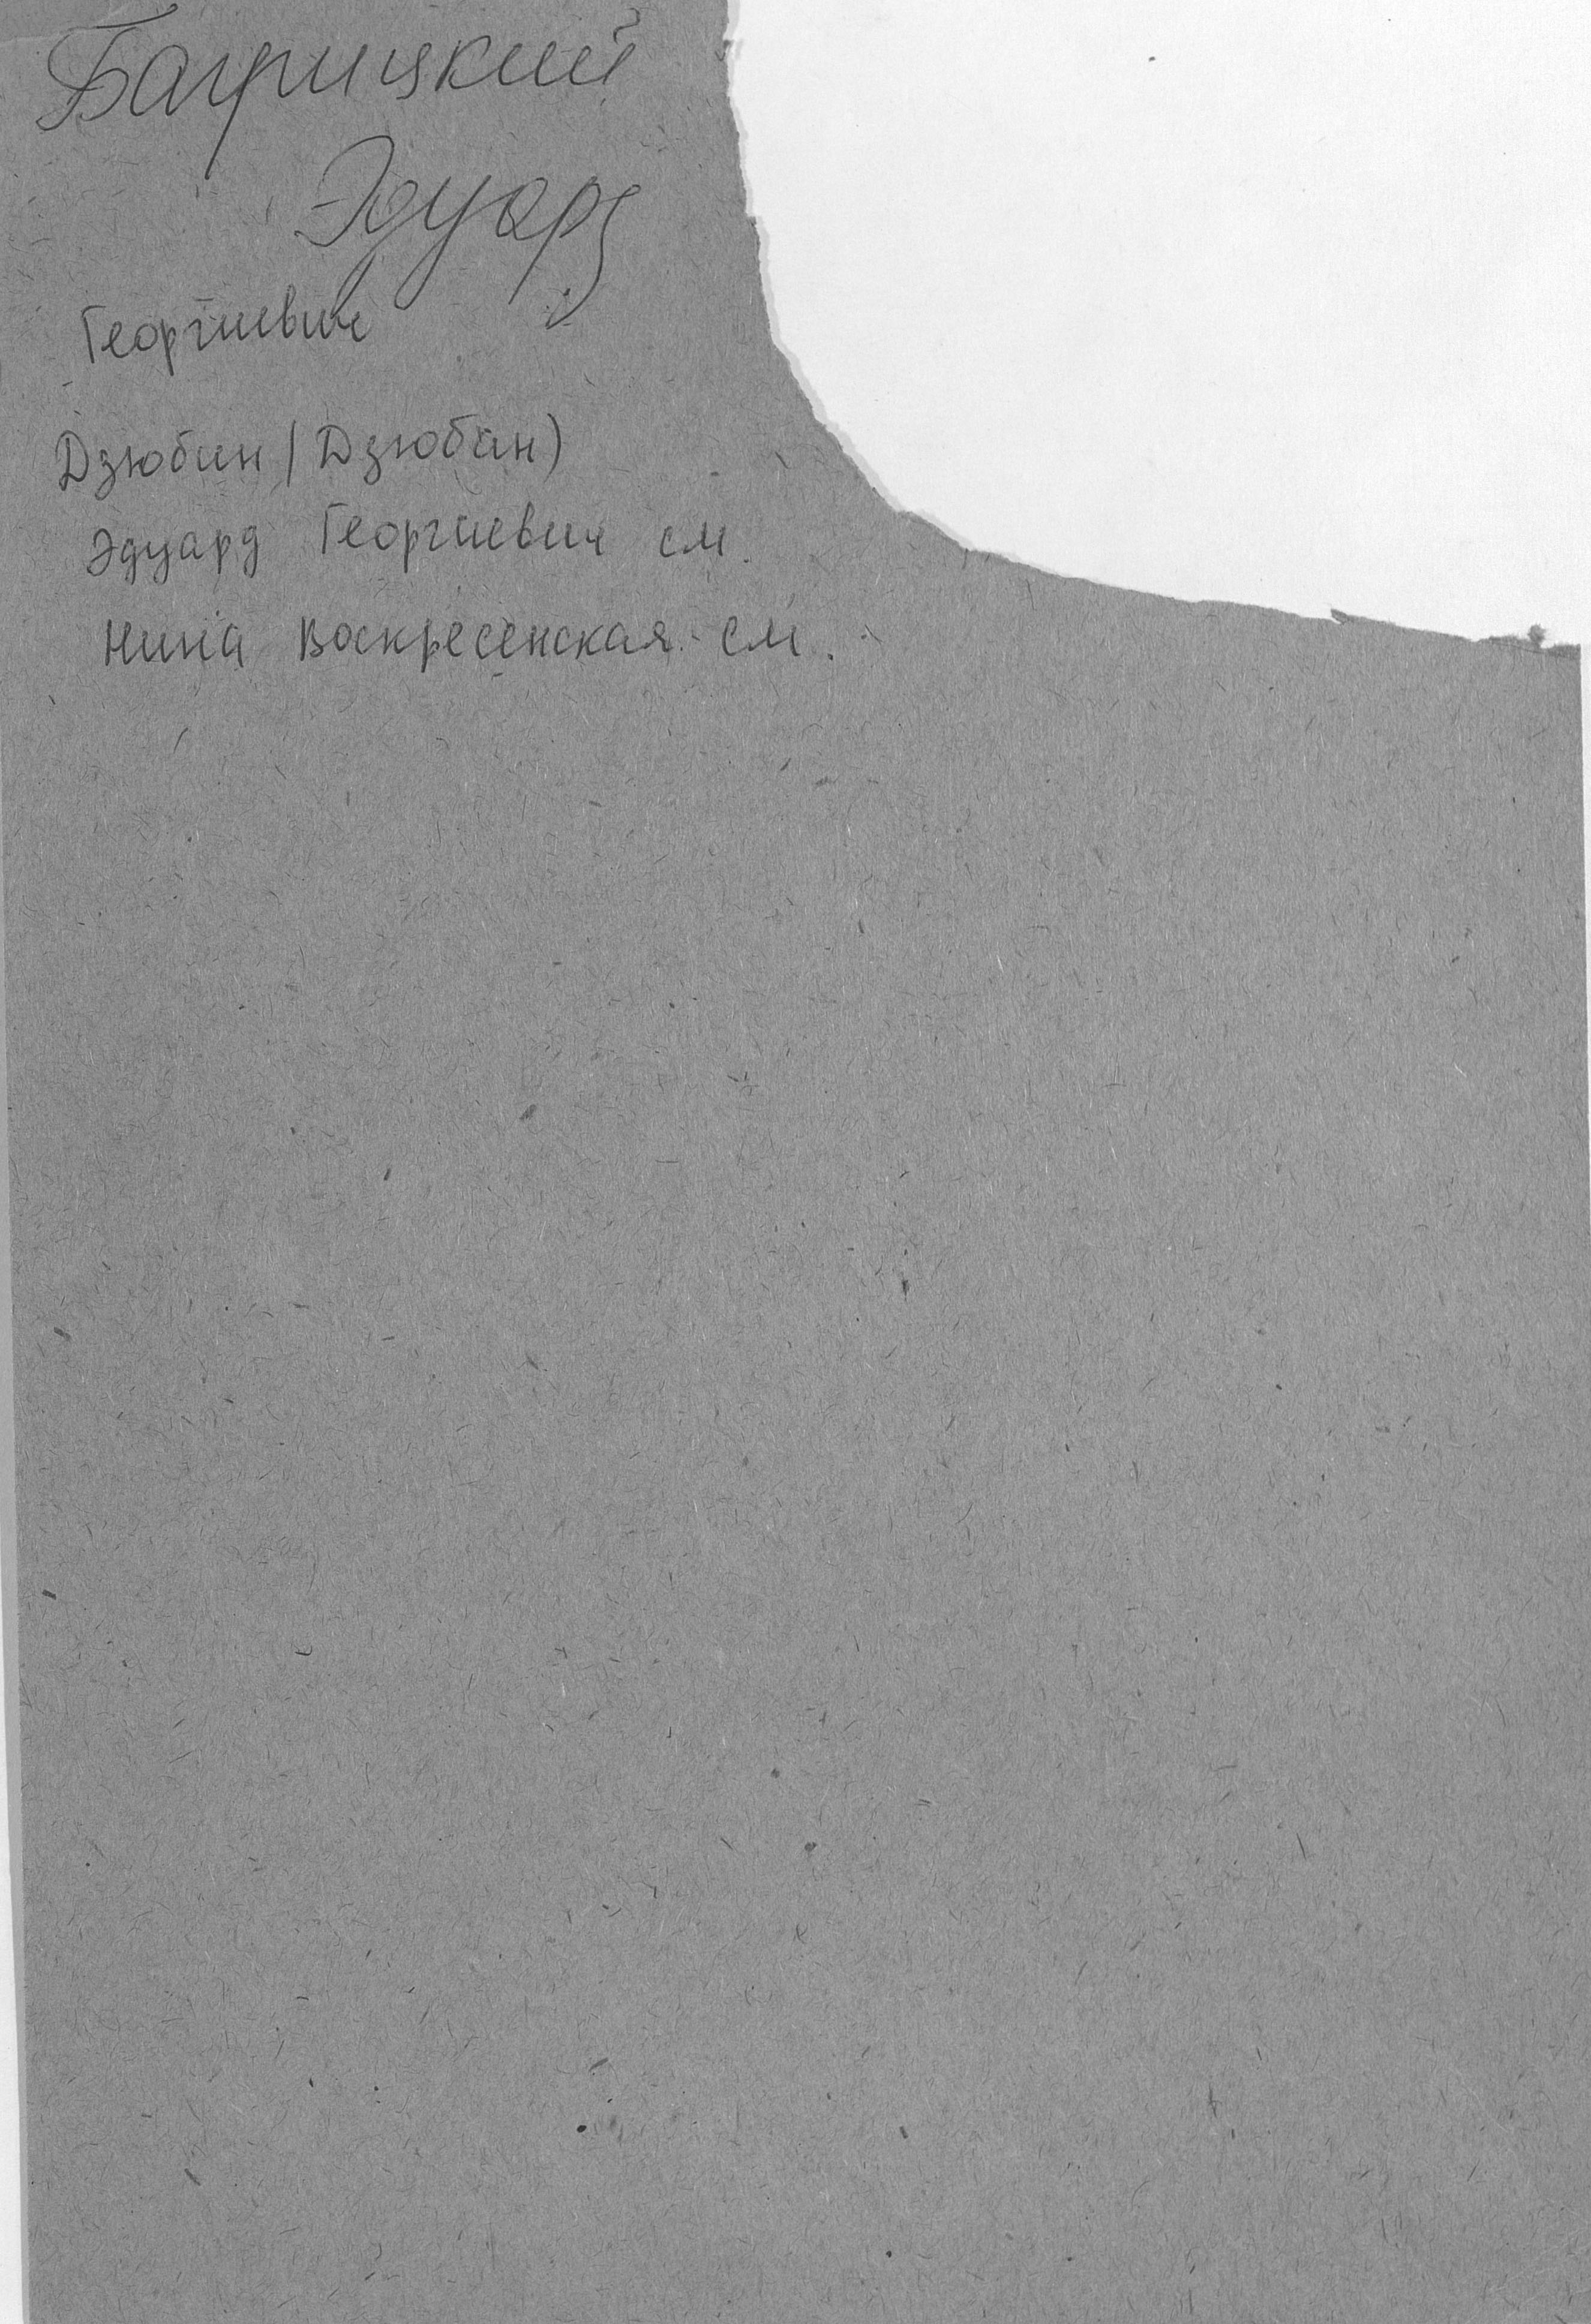 Багрицкий
Эдуард
Георгиевич
Дзюбин (Дзюбан)
Эдуард Георгиевич см.
Нина Воскресенская см.